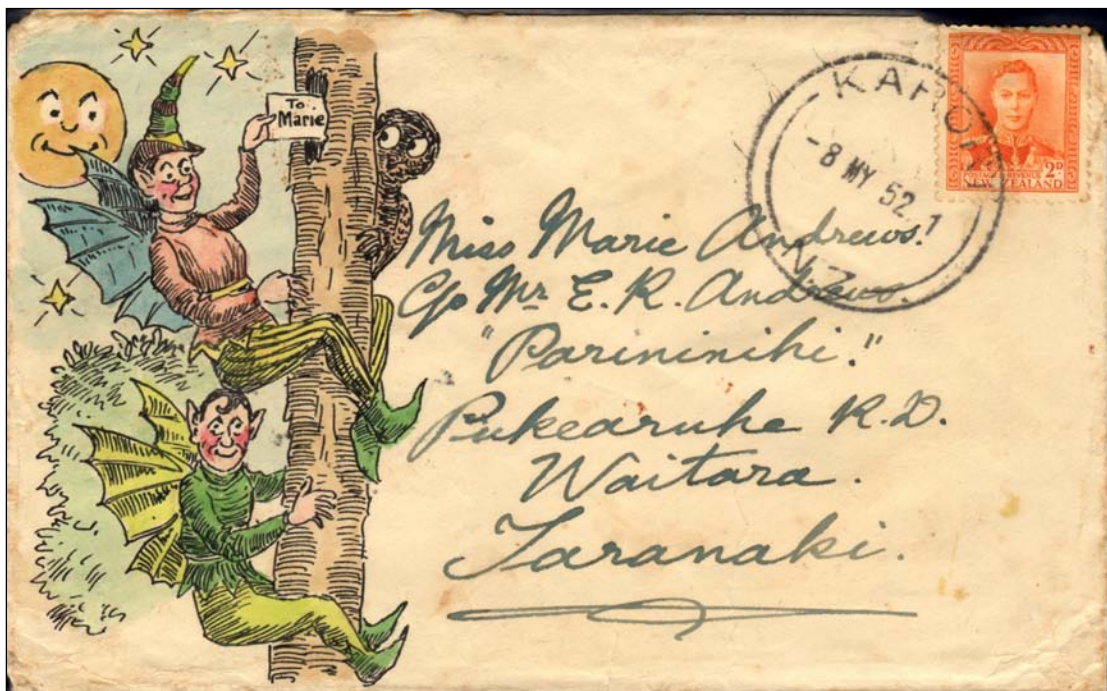 To
Marie
KARORI
-8 MY 52.1
N.Z.
2D
NEW ZEALAND
Miss Marie Andrews.
C/o Mr E. R. Andrews.
"Parininihi."
Pukearuhe R.D.
Waitara.
Taranaki.